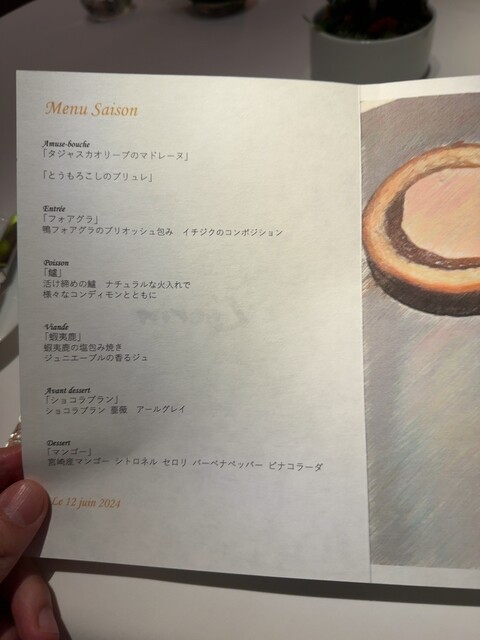 Menu Saison
Amuse-bouche
「タジャスカオリーブのマドレーヌ」
「とうもろこしのブリュレ」
Entrée
「フォアグラ」
鴨フォアグラのブリオッシュ包み イチジクのコンポジション
Poisson
「鱸」
活け締めの鱸 ナチュラルな火入れで
様々なコンディモンとともに
Viande
「蝦夷鹿」
蝦夷鹿の塩包み焼き
ジュニエーブルの香るジュ
Avant dessert
「ショコラブラン」
ショコラブラン 薔薇 アールグレイ
Dessert
「マンゴー」
宮崎産マンゴー シトロネル セロリ バーベナペッパー ピナコラーダ
Le 12 juin 2024